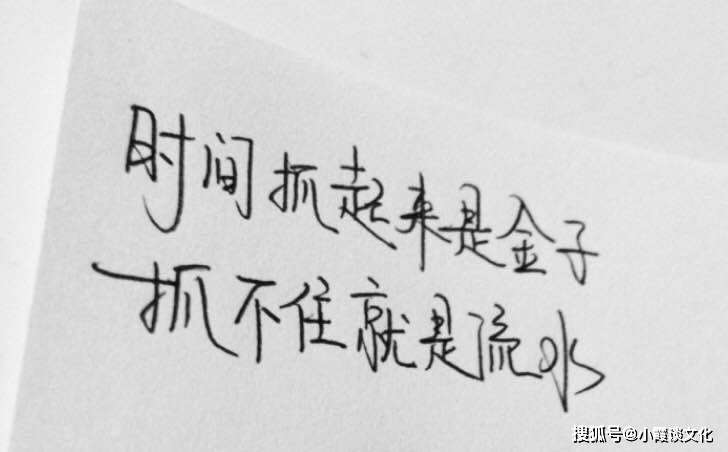 时间抓起来是金子
抓不住就是流水
搜狐号@小霞谈文化